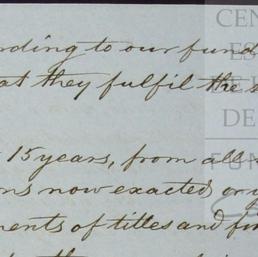 rding to our fund
at they fulfil the s
15 years, from all
ns now exacted or
ments of titles and f
CEN
ES
DE